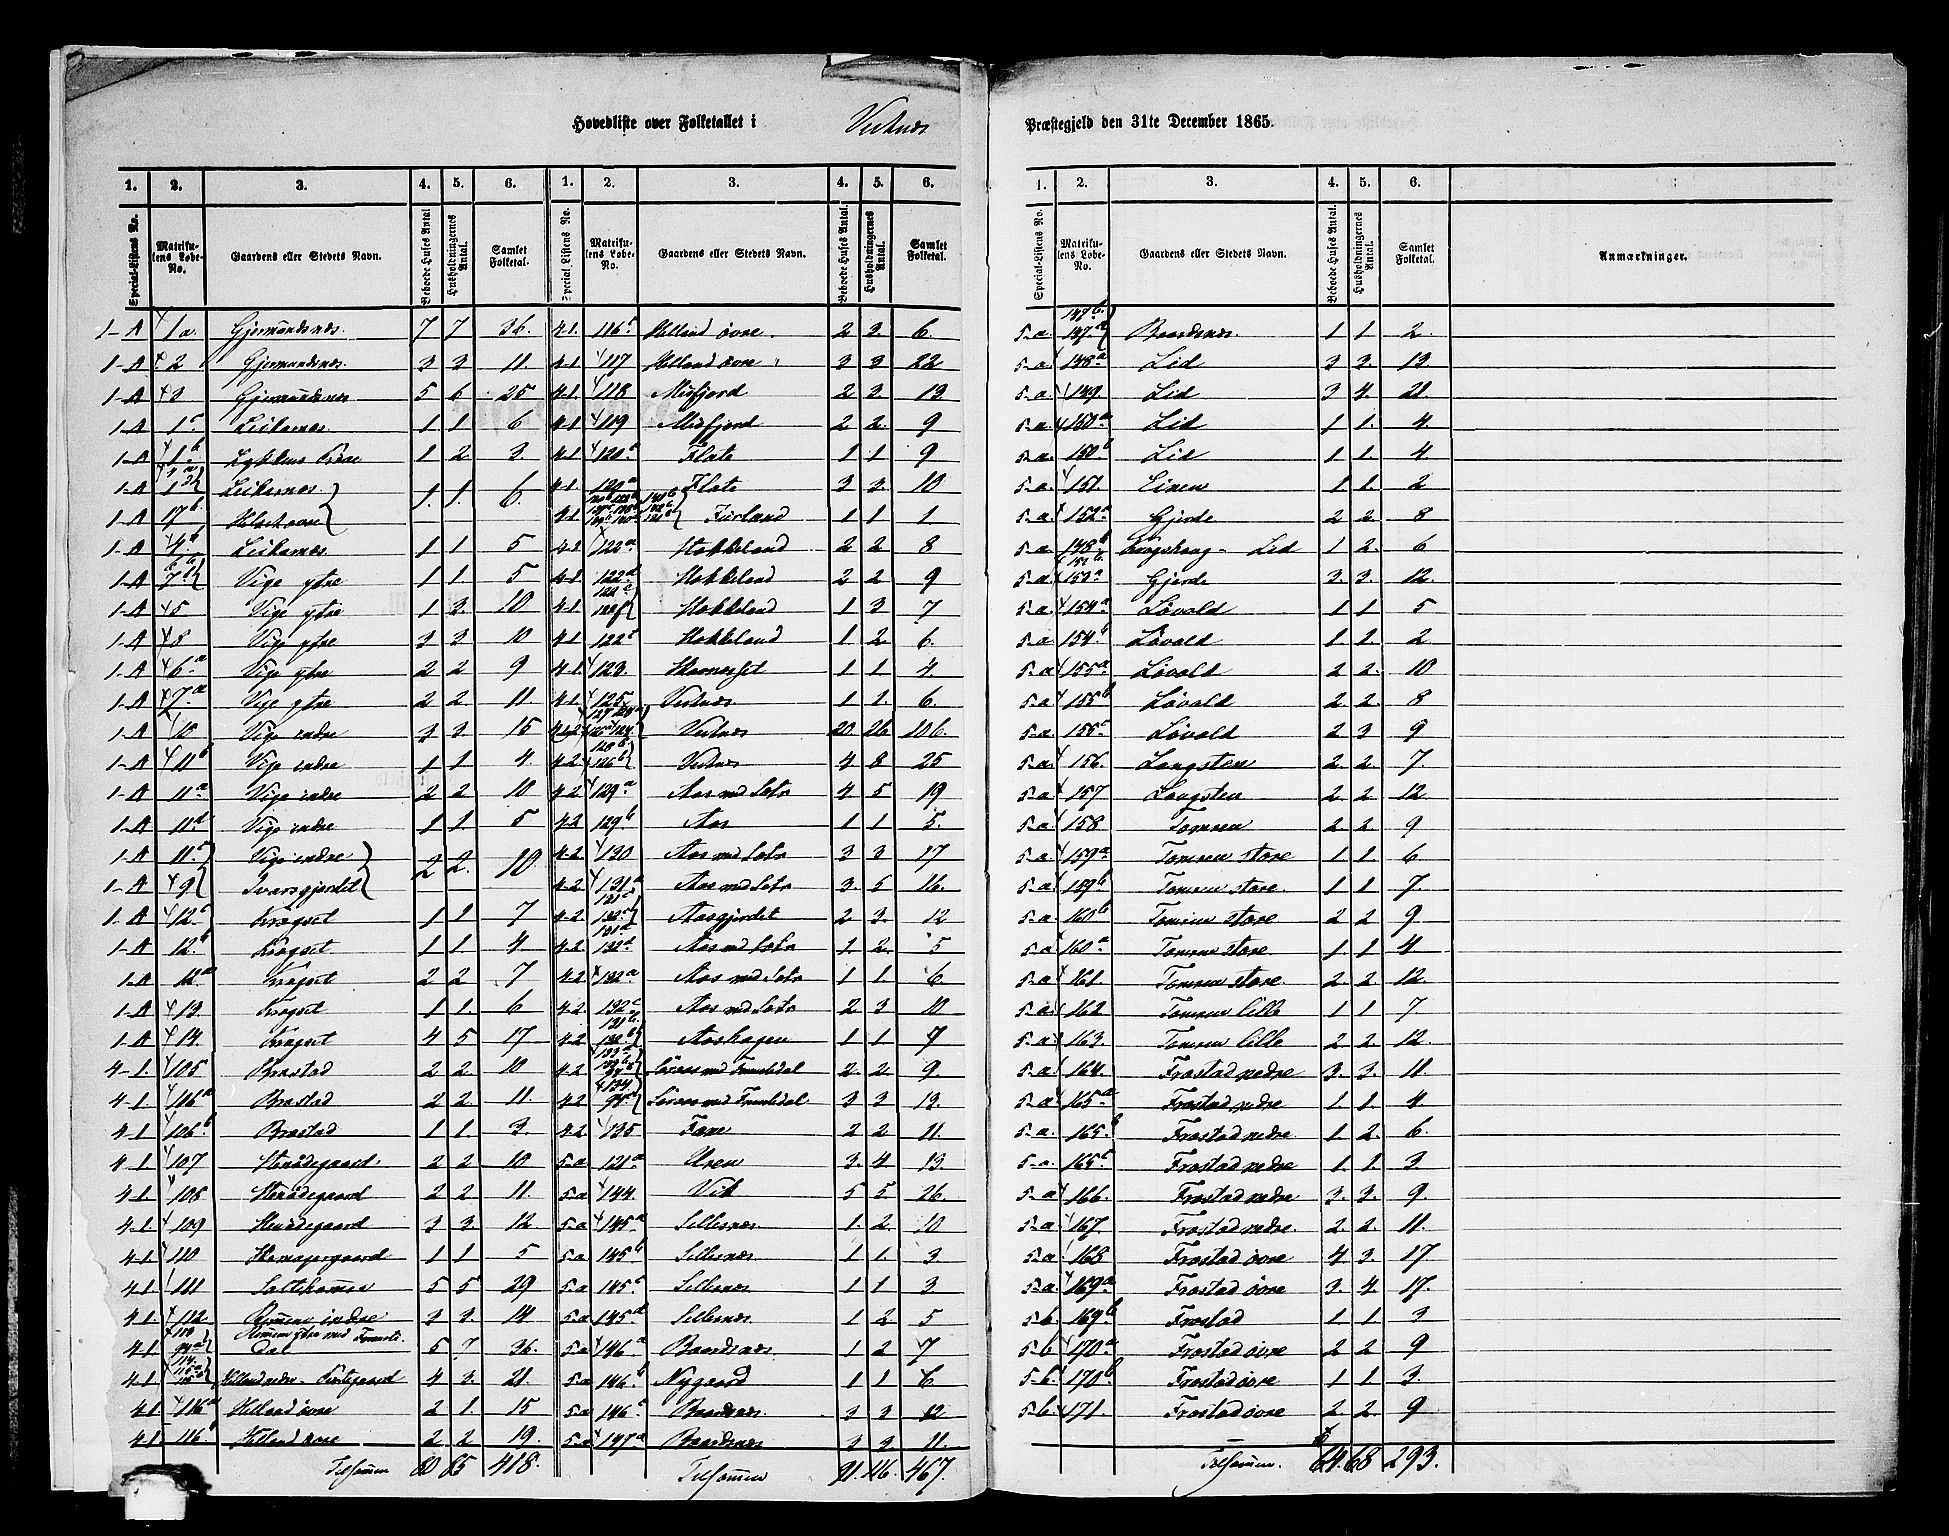 Hovedliste over Folketallet i Vestnæs Præstegjeld den 31te December 1865.
1. 2. 3. 4. 5. 6. 1. 2. 3. 4. 5. 6.
Special-Listens No. Matrikulens Løbe-No. Gaardens eller Stedets Navn. Beboede Huses Antal Husholdningernes Antal Samlet Folketal. Special-Listens No. Matrikulens Løbe-No. Gaardens eller Stedets Navn. Beboede Huses Antal. Husholdningernes Antal. Samlet Folketal.
1-A 1a. Gjermundsnæs. 7 7 36. 4-1. 116c Helland øvre. 2 2. 6.
1-A 2 Gjermundsnæs. 3 3 11. 4-1 117 Helland øvre 3 3 22
1-A 3 Gjermundsnæs 5 6 25 4-1 118 Misfjord 2 2. 13
1-A 1c Leikarnes. 1 1 6 4-1 119 Misfjord 2 2. 9
1-A 1b 1 2. 3. 4-1 120b Flate 1 1 9
1-A Leikarnes. 1. 1. 6. 4-1 120a Flate 3 3. 10
1-A 4-1 Furland 1 1 1
1-A 4b Leikarnes. 1 1 5 4-1 122a Stokkeland 2 2 8
1-A Vige ytre 1 1. 5 4-1 122d Stokkeland 2 2 9
1-A 5 Vige ytre 1 3. 10 4-1 Stokkeland 1 3 7
1-A 8 Vige ytre 3 3 10 4-1 122 Stokkeland 1 2. 6.
1-A 6a Vige ytre 2 2 9 4-1 123. 1 1 4.
1-A 7a Vige ytre 2 2. 11 4-1. 125. Vestnæs 1 1. 6.
1-A 10 Vige indre 3 3. 15 4-2 Vestnæs 20 26 106.
1-A 11b Vige indre 1 1 4. 4-2 126b Vestnæs 4 8 25
1-A 11a Vige indre 2 2 10 4-2 129a Aas med Sæter 4 5 19
1-A 11d Vige indre 1 1. 5 4-2 129b Aas 1 1 5.
1-A 11c Vige indre 2 2. 10 4-2 130 Aas med Sæter 3 3 17
1-A 9 Ivarsgjerdet 4-2 131a Aas med Sæter 3. 5 16.
1-A 12c Kragset 1 1 7 4-2 Aasgjerdet 2 3. 12
1-A 12b Kragset 1 1. 4 4-2 Aas med Sæter 1. 2. 5
1-A Kragset 2 2 7 4-2 132a Aas med Sæter 1 1. 6
1-A 13. Kragset 1 1. 6 4-2 132c Aas med Sæter 2 3 10
1-A 14. Kragset 4 5 17 4-2 Aashagen 1 1 7
4-1. 105 Brastad 2 2 10 4-2 Søraas med Tomrdal 2. 2. 9
4-1. 106a Brastad 2 2. 11. 4-2 Søraas med Tomrdal 3 3 13.
4-1. 106b Brastad 1 1. 3. 4-2 135 Fæn 2 2 11.
4-1 107 Stenødegaard. 2 2 10 5a Uren 3. 4 13
4-1. 108 Stenødegaard 2 2 11. 5a 144 Vik 5 5 26
4-1 109 Stenødegaard 3 3. 12 5a 145a Sellesnæs 1. 2. 10
4-1 110 1 1 5 5a 145b Sellesnæs 1 1. 3.
4-1 111 Salthammer 5 5 29 5a 145c Sellesnæs 1 1 3
4-1. 112. indre 3 3. 14 5a 145d Sellesnæs. 1 2 5
4-1 5 7 36. 5a 146a Baardsnæs 1 2 7
4-1 Helland nedre - Prestegaard 4 3. 21. 5a 146b Nygaard 1 1 6
4-1 116a Helland øvre 2 1. 15 5a 146c Baardsnæs. 3 3 12
4-1. 116b Helland øvre 2. 2 19. 5a 147a Baardsnæs 3 3 11.
Tilsammen 80 85 418. Tilsammen 91. 116. 467.
1. 2. 3. 4. 5. 6.
Special-Listens No. Matrikulens Løbe-No. Gaardens eller Stedets Navn. Beboede Huses Antal. Husholdningernes Antal. Samlet Folketal. Anmærkninger.
5-a 147b 147c Baardsnæs. 1 1 2.
5-a 148a Lid 3 3. 13.
5-a. 149. Lid 3 4. 21.
5-a. 150a Lid 1 1. 4.
5-a. 150b Lid 1 1. 4
5-a 151. Einen 1 1. 2
5-a 152a Gjerde 2 2. 8
5-a 148b Kongshaug - Lid 1 2. 6
5-a 153a Gjerde 3. 3. 12.
5-a 154a Løvold 1 1 5
5-a 154b Løvold 1. 1. 2
5-a 155a Løvold 2 2. 10
5-a 155b Løvold 2 2. 8
5-a 155c Løvold 2 3 9
5-a 156. Langsten 2. 2. 7
5-a 157 Langsten 2 2. 12
5-a 158 Tomren 2 2 9
5-a 159a Tomren store 1 1 6
5-a 159b Tomren store 1 1 7.
5-a 160b Tomren store 2 2 9
5-a 160a Tomren store. 1 1 4
5-a 161. Tomren store 2 2. 12.
5-a 162 Tomren lille 1 1 7.
5-a 163 Tomren lille 2 2. 12.
5-a 164. Frostad nedre 3. 3. 11
5-a 165a Frostad nedre 1. 1. 4
5-a. 165b Frostad nedre 1. 2. 6.
5-a. 165c Frostad nedre 1. 1. 3
5-a 166. Frostad nedre 3. 3. 9.
5-a 167. Frostad nedre 2. 2. 11.
5-a. 168 Frostad øvre 4 3. 17
5-a 169a Frostad øvre 3. 4. 17.
5-b. 169b Frostad 1 1 3
5-b 170a Frostad øvre 2 2 9
5-b. 170b Frostad øvre 1 1 3.
5-b. 171. Frostad øvre 2 2 9
Tilsammen. 64. 68 293.